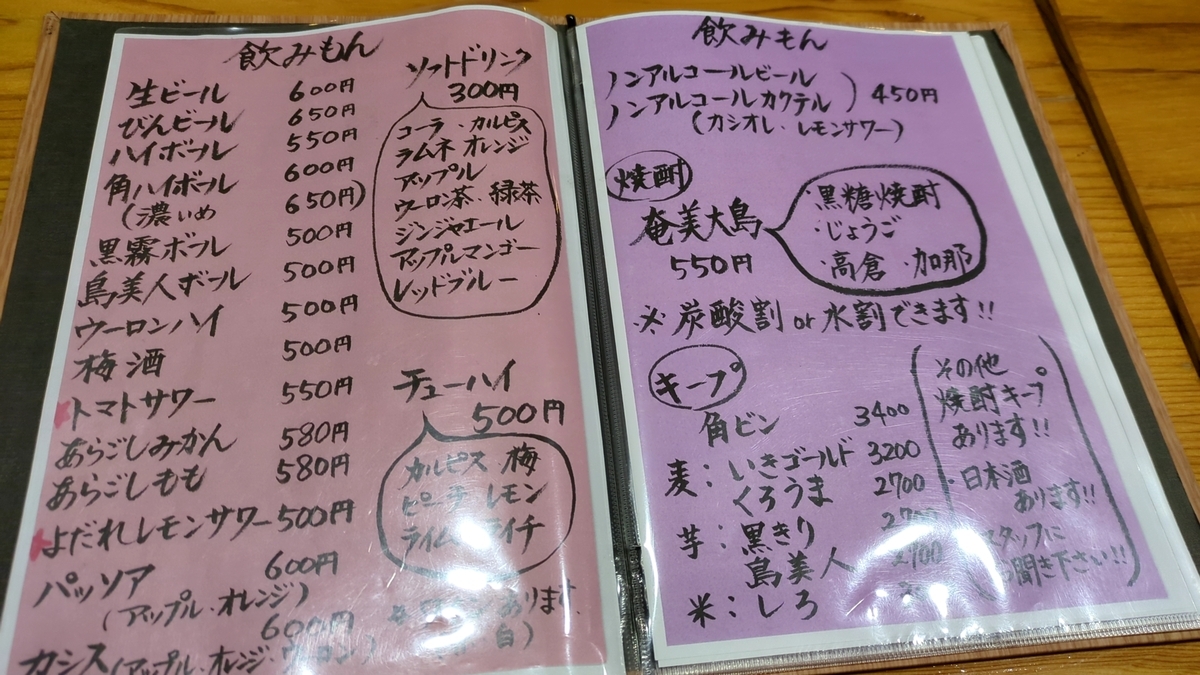 飲みもん
生ビール 600円
びんビール 650円
ハイボール 550円
角ハイボール 600円
(濃いめ 650円)
黒霧ボール 500円
島美人ボール 500円
ウーロンハイ 500円
梅酒 500円
トマトサワー 550円
あらごしみかん 580円
あらごしもも 580円
よだれレモンサワー 500円
パッソア 600円
(アップル・オレンジ)
カシス 600円
(アップル・オレンジ・
ソフトドリンク
300円
コーラ・カルピス
ラムネ オレンジ
アップル
ウーロン茶・緑茶
ジンジャエール
アップルマンゴー
レッドブルー
チューハイ
500円
カルピス 梅
ピーチ レモン
ライム ライチ
あります
白)
飲みもん
ノンアルコールビール
ノンアルコールカクテル ) 450円
(カシオレ・レモンサワー)
焼酎
奄美大島
550円
・黒糖焼酎
・じょうご
・高倉 ・加那
※炭酸割or水割できます!!
キープ
角ビン 3400
麦:いきゴールド 3200
くろうま 2700
芋:黒きり
島美人
米:しろ
その他
焼酎キープ
あります!!
・日本酒
あります!!
スタッフに
聞き下さい!!